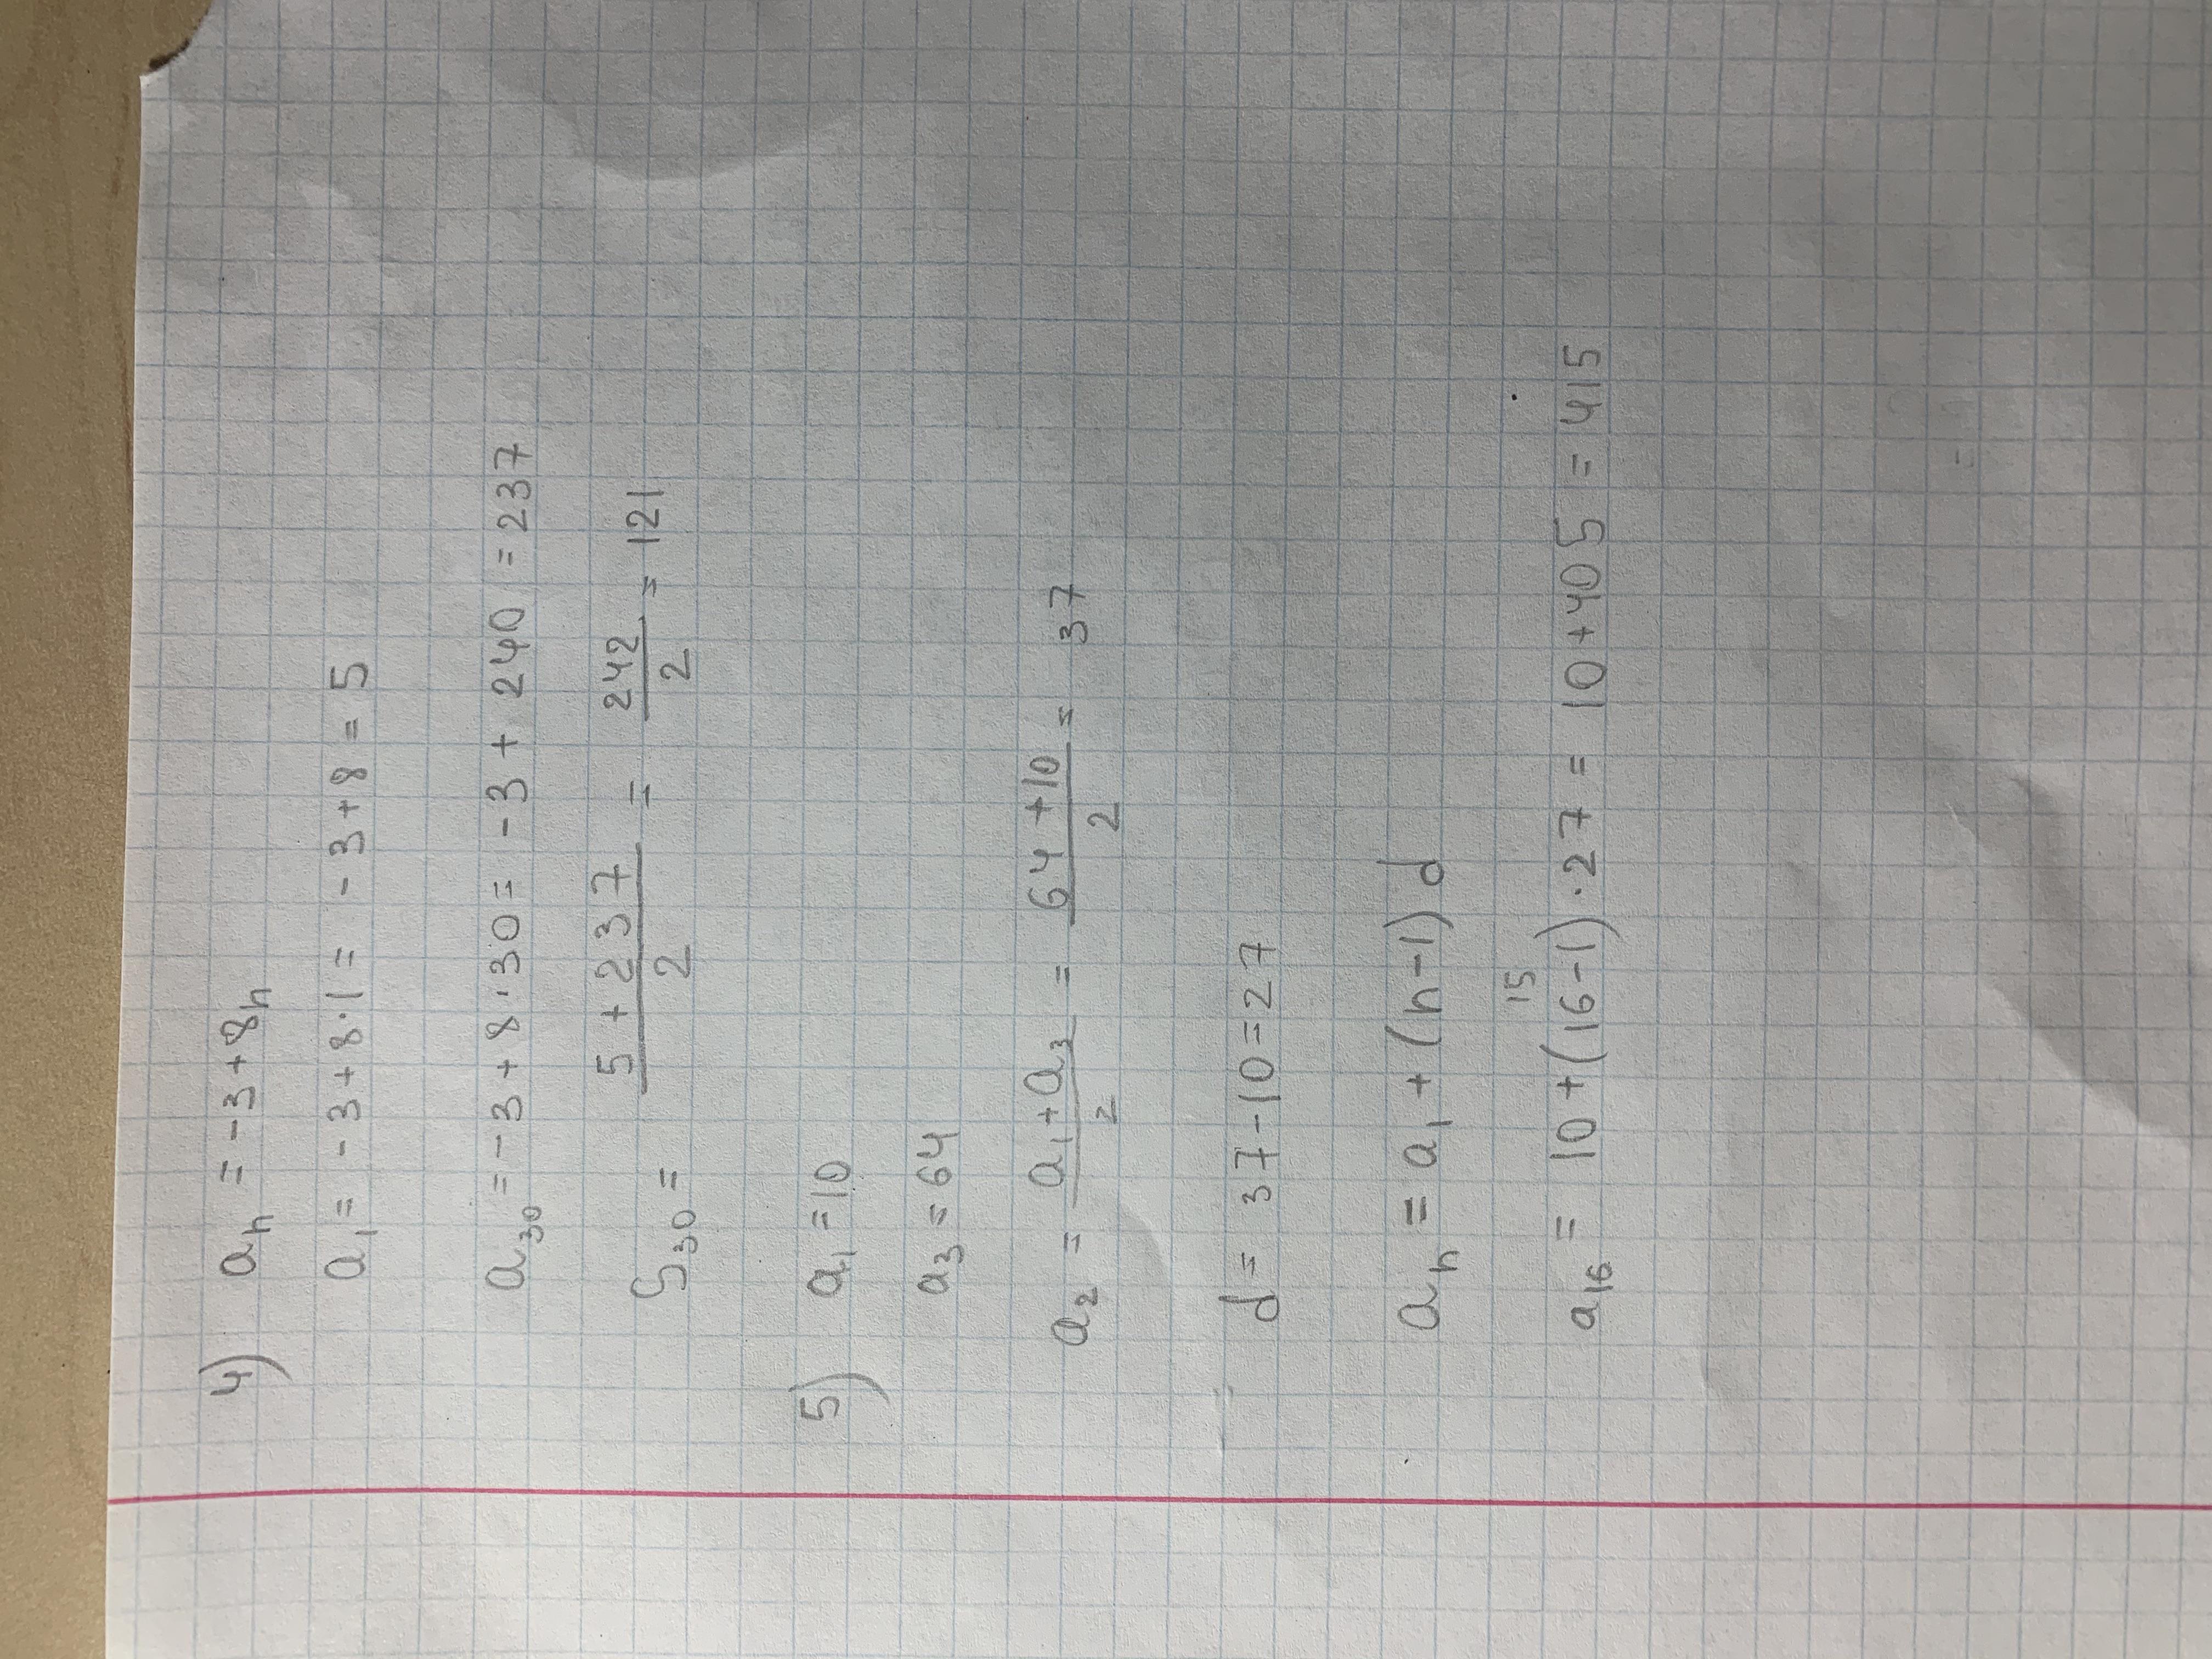 4) aₙ = -3+8n
a₁ = -3+8·1 = -3+8=5
a₃₀ = -3+8·30= -3+240=237
S₃₀ = (5+237)/2 = 242/2 = 121
5) a₁=10
a₃=64
a₂ = (a₁+a₃)/2 = (64+10)/2 = 37
d = 37-10=27
aₙ = a₁+(n-1)d
15
a₁₆ = 10+(16-1)·27 = 10+405=415